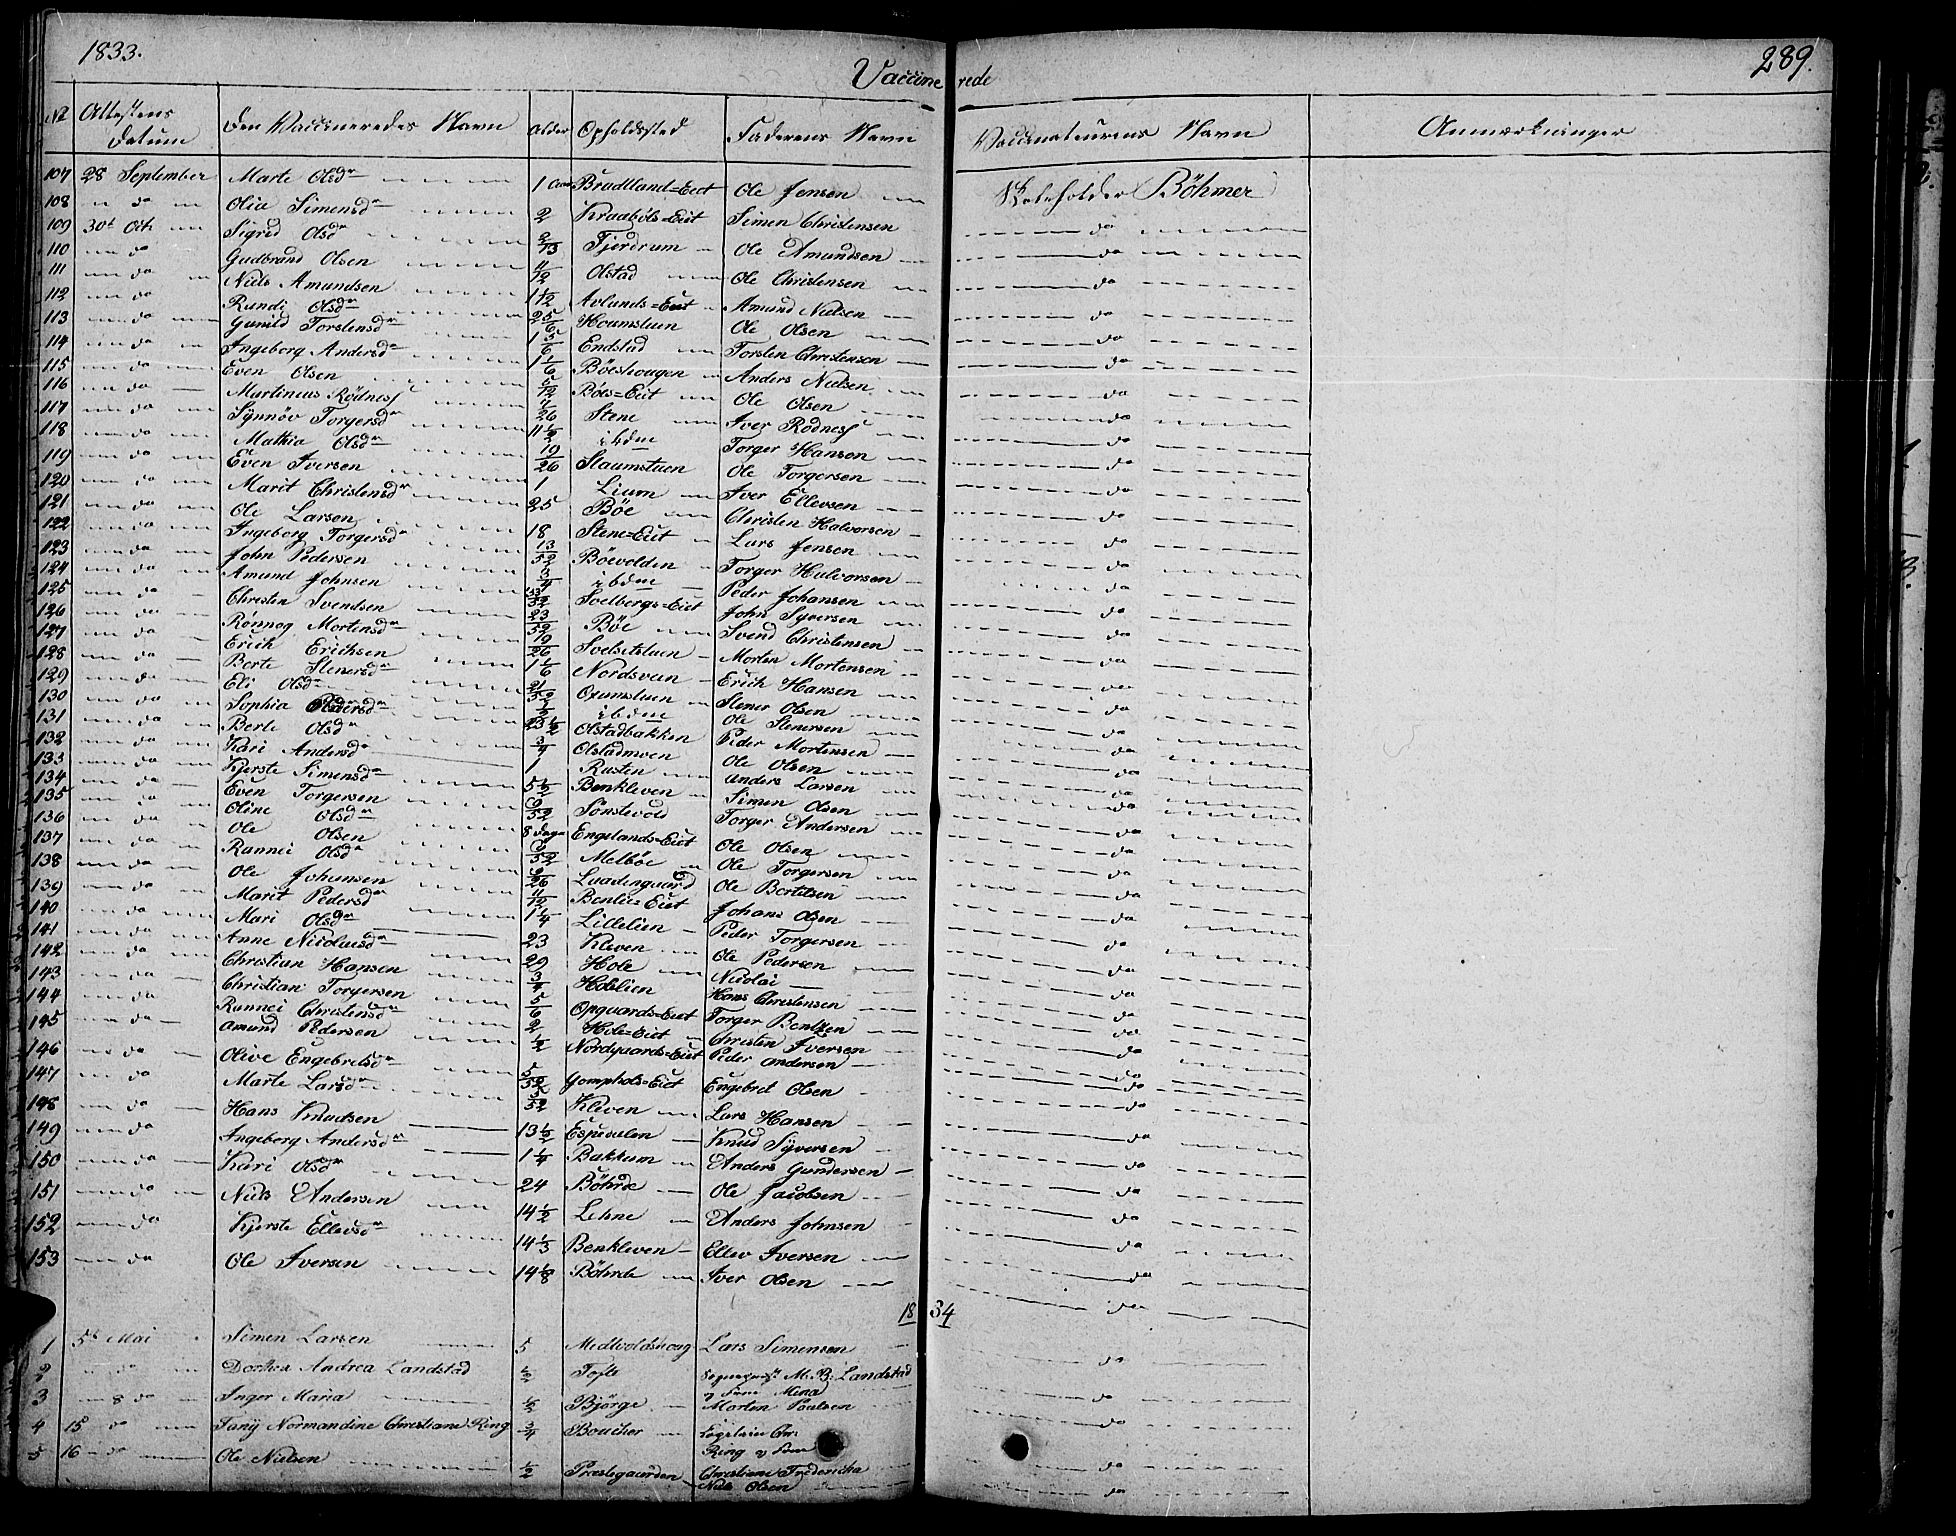 1833.
289.
Vaccinerede
No Attestens Datum | Den Vaccineredes Navn | Alder | Opholdsted | Faderens Navn | Vaccinateurens Navn | Anmærkninger
107 28 September Marte Olsdr 1 Aar Bradtland=Eiet Ole Jensen Böhmer
108 " da " Olia Simensdr 2 Kraaböls=Eiet Simen Christensen da
109 30t Octr Sigrid Olsdr Fjerdrum Ole Amundsen da
110 da Gudbrand Olsen 11/12 Olstad Ole Christensen da
111 da Niels Amundsen 1 1/2 Avlunds=Eiet Amund Nielsen da
112 da Randi Olsdr 25 Houmstuen Ole Olsen da
113 da Gunild Torstensdr 1 5/6 Endstad Torsten Christensen da
114 da Ingeborg Andersdr 1 1/6 Böeshougen Anders Nielsen da
115 da Even Olsen 5/12 Böes=Eiet Ole Olsen da
116 da Martinus Rödness 7/26 Stene Iver Rödness da
117 da Synnöv Torgersdr 11 1/2 ibdm Torger Hanson da
118 da Mathia Olsdr 19/26 Slaumstuen Ole Torgersen da
119 da Even Iversen 1 Lium Iver Ellevsen da
120 da Marit Christensdr 25 Böe Christen Halvorsen da
121 da Ole Larsen 18 Stene=Eiet Lars Jensen da
122 da Ingeborg Torgersdr 13/52 Böevolden Torger Halvorsen da
123 da John Pedersen 3/4 ibdm Peder Johansen da
124 da Amund Johnsen Svelbergs=Eiet John Syversen da
125 da Christen Svendsen 23/52 Böe Svend Christensen da
126 da Rönnog Mortensdr 19/26 Svelsetstuen Morten Mortensen da
127 da Erich Erichsen 1 1/6 Nordsveen Erich Hansen da
128 da Berte Stenersdr 21/52 Oxumstuen Stener Olsen da
129 da Eli Olsdr ibdm Ole Stenersen da
130 da Sophia Pedersdr 23 1/2 Olstadbakken Peder Mortensen da
131 da Berte Olsdr 3/4 Olstadmoen Ole Olsen da
132 da Kari Andersdr 1 Rusten Anders Larsen da
133 da Kjerste Simensdr 5 1/2 Benkleven Simen Olsen da
134 da Even Torgersen 9/52 Sönstevold Torger Andersen da
135 da Oline Olsdr 8 Dage Engelands=Eiet Ole Olsen da
136 da Ole Olsen Melböe Ole Torgersen da
137 da Rannei Olsdr 9/26 Laadengaard Ole Bertelsen da
138 da Ole Johansen 11/12 Benlie=Eiet Johans Olsen da
139 da Marit Pedersdr 1 1/4 Lillelien Peder Torgersen da
140 da Mari Olsdr 23 Kleven Ole Pedersen da
141 da Anne Nicolaisdr 29 Hole Nicolai da
142 da Christian Hansen 3/4 Holelien Hans Christensen da
143 da Christian Torgersen 5/6 Opgaards=Eiet Torger Bentzen da
144 da Rannei Christensdr 2 Hole=Eiet Christen Iversen da
145 da Amund Pedersen 1/2 Nordgaards=Eiet Peder Andersen da
146 da Olive Engebretsdr 5/52 Gomphols=Eiet Engebret Olsen da
147 da Marte Larsdr Kleven Lars Hansen da
148 da Hans Knudsen 13 1/2 Espevolen Knud Syversen da
149 da Ingeborg Andersdr 1 1/4 Bakkum Anders Gundersen da
150 da Kari Olsdr 24 Böhrde Ole Jacobsen da
151 da Niels Andersen 14 1/2 Lehne Anders Johnsen da
152 da Kjerste Ellevsdr 14 1/3 Benkleven Ellev Iversen da
153 da Ole Iversen 14 1/8 Böhrde Iver Olsen da
1834
1 5t Mai Simen Larsen 5 Medtvoldshoug Lars Simensen da
2 da Dorthea Andrea Landstad 1/2 Tofte M. B. Landstad
Mina da
3 8 da Inger Maria 1/2 Björge Morten Paulsen da
4 15 da Fanÿ Normandine Christiane Ring 3/4 Boucher
Ring og
Christiane Fredericka da
5 16 da Ole Nielsen 1/2 Præstegaarden Niels Olsen da